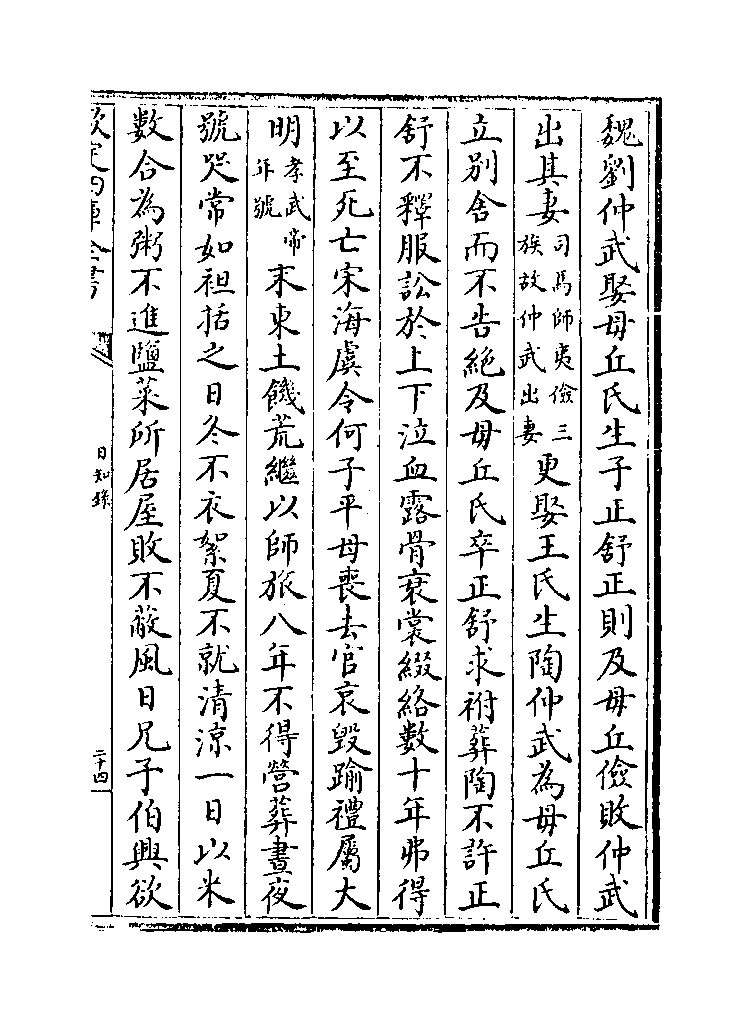 魏劉仲武娶毋丘氏生子正舒正則及毋丘儉敗仲武
出其妻司馬師夷儉三族故仲武出妻更娶王氏生陶仲武為毋丘氏
立別舍而不告絕及毋丘氏卒正舒求祔葬陶不許正
舒不釋服訟於上下泣血露骨衰裳綴絡數十年弗得
以至死亡宋海虞令何子平母喪去官哀毀踰禮屬大
明孝武帝年號末東土饑荒繼以師旅八年不得營葬晝夜
號哭常如袒括之日冬不衣絮夏不就清涼一日以米
數合為粥不進鹽菜所居屋敗不蔽風日兄子伯興欲
欽定四庫全書
日知錄
二十四